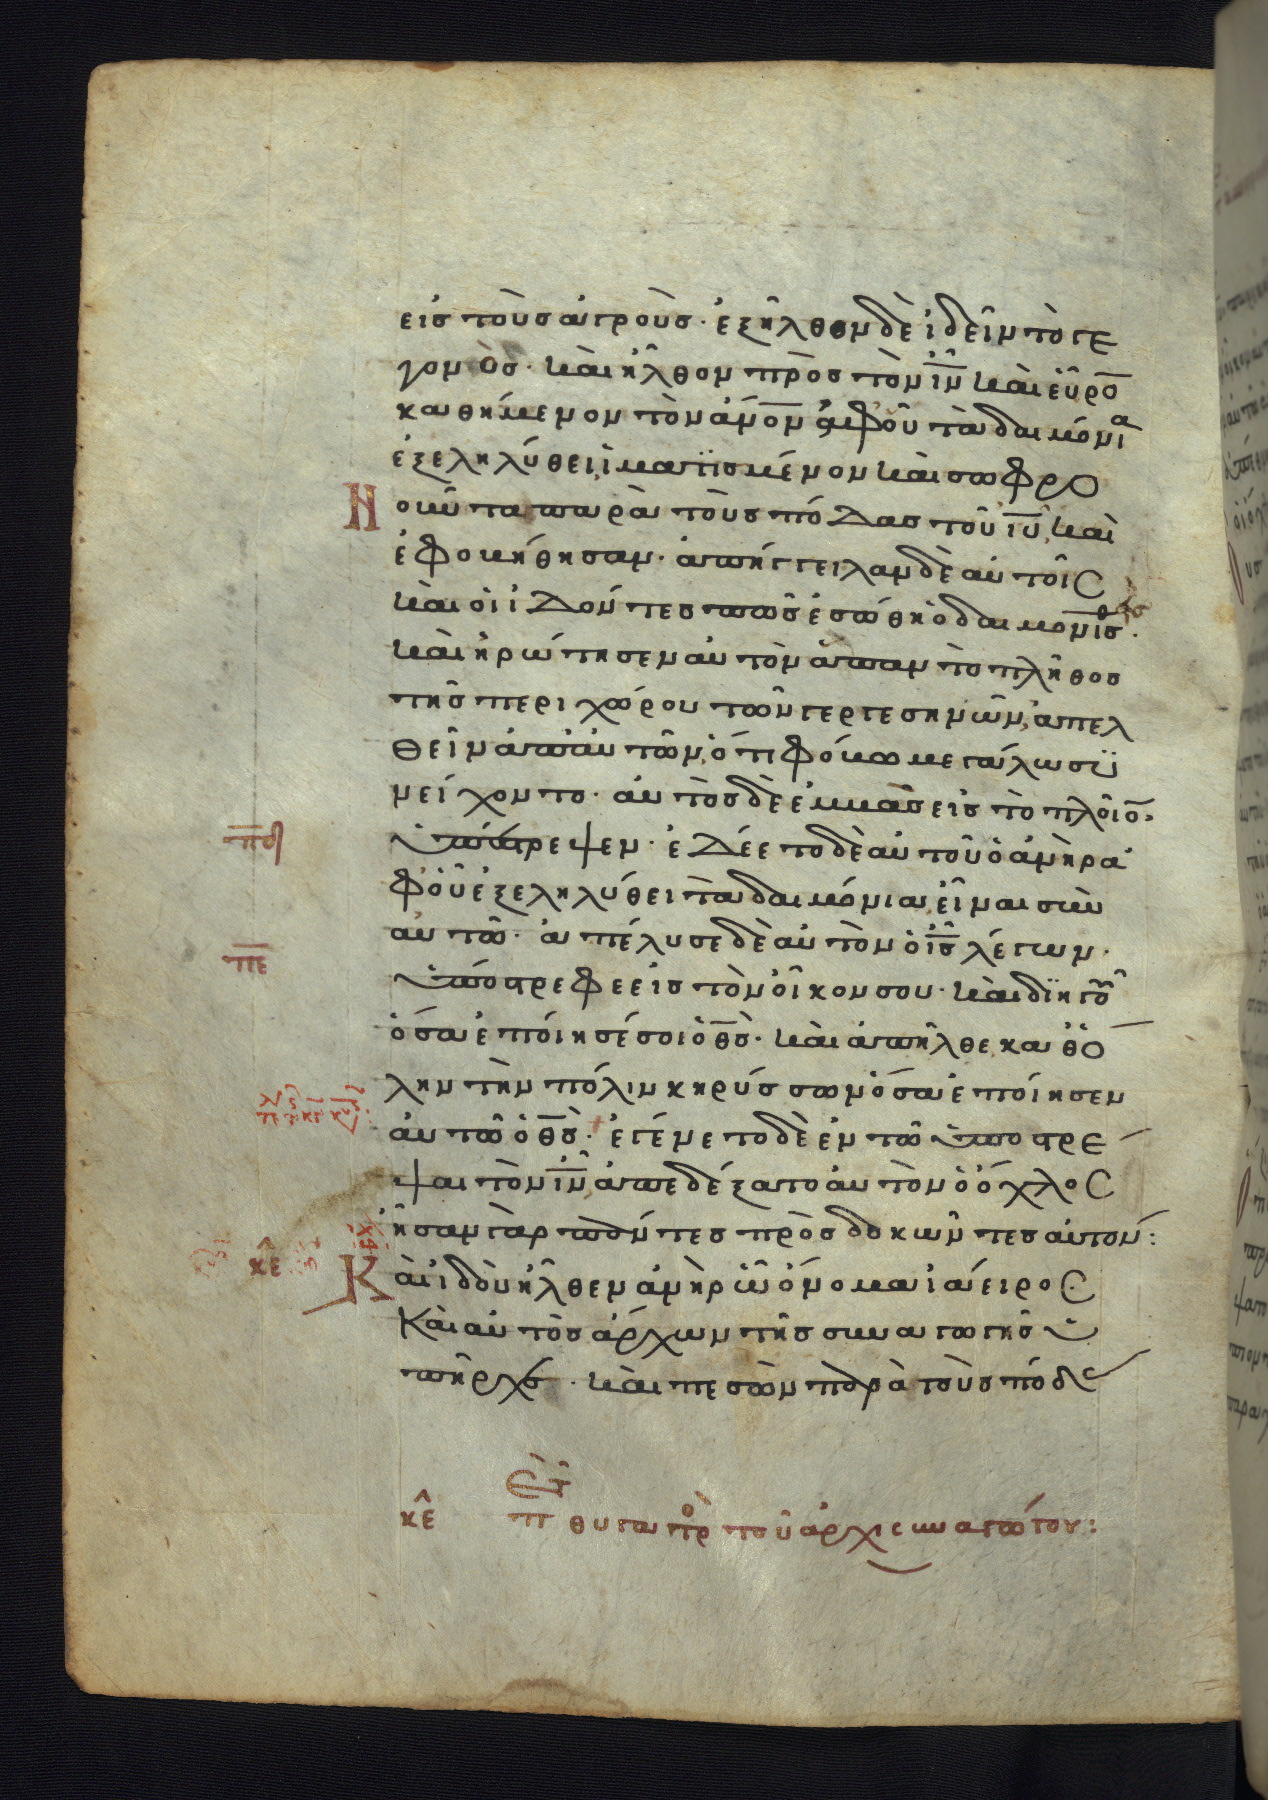 εἰς τοὺς ἀγρούς· ἐξῆλθον δὲ ἰδεῖν τὸ γε
γονὸς· καὶ ἦλθον πρὸς τὸν ι̅ν̅ καὶ εὗρο̅
καθήμενον τὸν α̅ν̅ο̅ν̅ ἀφ' οὗ τὰ δαιμόνια
ἐξεληλύθει, ἱματισμένον καὶ σωφρο
νοῦντα παρὰ τοὺς πόδας τοῦ ι̅υ̅, καὶ
ἐφοβήθησαν· ἀπήγγειλαν δὲ αὐτοῖς
καὶ οἱ ἰδόντες πῶς ἐσώθη ὁ δαιμονισθείς·
καὶ ἠρώτησεν αὐτὸν ἅπαν τὸ πλῆθος
τῆς περιχώρου τῶν γεργεσηνῶν, ἀπελ
θεῖν ἀπ' αὐτῶν, ὅτι φόβω μεγάλω συ
νείχοντο· αὐτὸς δὲ ἐμβὰς εἰς τὸ πλοῖο̅·
π̅δ̅ ὑπέστρεψεν· ἐδέετο δὲ αὐτοῦ ὁ ἀνὴρ ἀ
φ' οὗ ἐξεληλύθει τὰ δαιμόνια, εἶναι σὺν
αὐτῶ· ἀπέλυσε δὲ αὐτὸν ὁ ι̅ς̅ λέγων·
π̅ε̅ ὑπόστρεφε εἰς τὸν οἶκόν σου· καὶ διηγοῦ
ὅσα ἐποίησέ σοι ὁ θ̅ς̅· καὶ ἀπῆλθε, καθ' ὅ
λην τὴν πόλιν κηρύσσων ὅσα ἐποίησεν
αὐτῶ ὁ θ̅ς̅· ἐγένετο δὲ ἐν τῶ ὑποστρέ
ψαι τὸν ι̅ν̅, ἀπεδέξατο αὐτὸν ὁ ὄχλος
ἦσαν γὰρ πάντες προσδοκῶντες αὐτόν:
κε Καὶ ἰδοὺ ἦλθεν ἀνὴρ ὧ ὄνομα ἰάειρος
Καὶ αὐτὸς ἄρχων τῆς συναγωγῆς ὑ
πῆρχε· καὶ πεσὼν παρὰ τοὺς πόδας
κε π θυγατρὸς τοῦ ἀρχισυναγώγου: